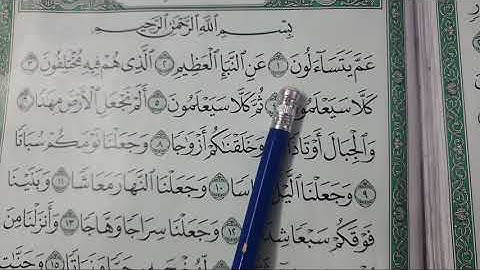 بِسْمِ ٱللَّهِ ٱلرَّحْمَٰنِ ٱلرَّحِيمِ
عَمَّ يَتَسَآءَلُونَ ١ عَنِ ٱلنَّبَإِ ٱلْعَظِيمِ ٢ ٱلَّذِى هُمْ فِيهِ مُخْتَلِفُونَ ٣
كَلَّا سَيَعْلَمُونَ ثُمَّ كَلَّا سَيَعْلَمُونَ ٥ أَلَمْ نَجْعَلِ ٱلْأَرْضَ مِهَٰدًا ٦
وَٱلْجِبَالَ أَوْتَادًا وَخَلَقْنَٰكُمْ أَزْوَٰجًا ٨ وَجَعَلْنَا نَوْمَكُمْ سُبَاتًا
٩ وَجَعَلْنَا ٱلَّيْلَ ١٠ وَجَعَلْنَا ٱلنَّهَارَ مَعَاشًا ١١ وَبَنَيْنَا
فَوْقَكُمْ سَبْعًا ١٢ وَجَعَلْنَا سِرَاجًا وَهَّاجًا ١٣ وَأَنزَلْنَا مِنَ